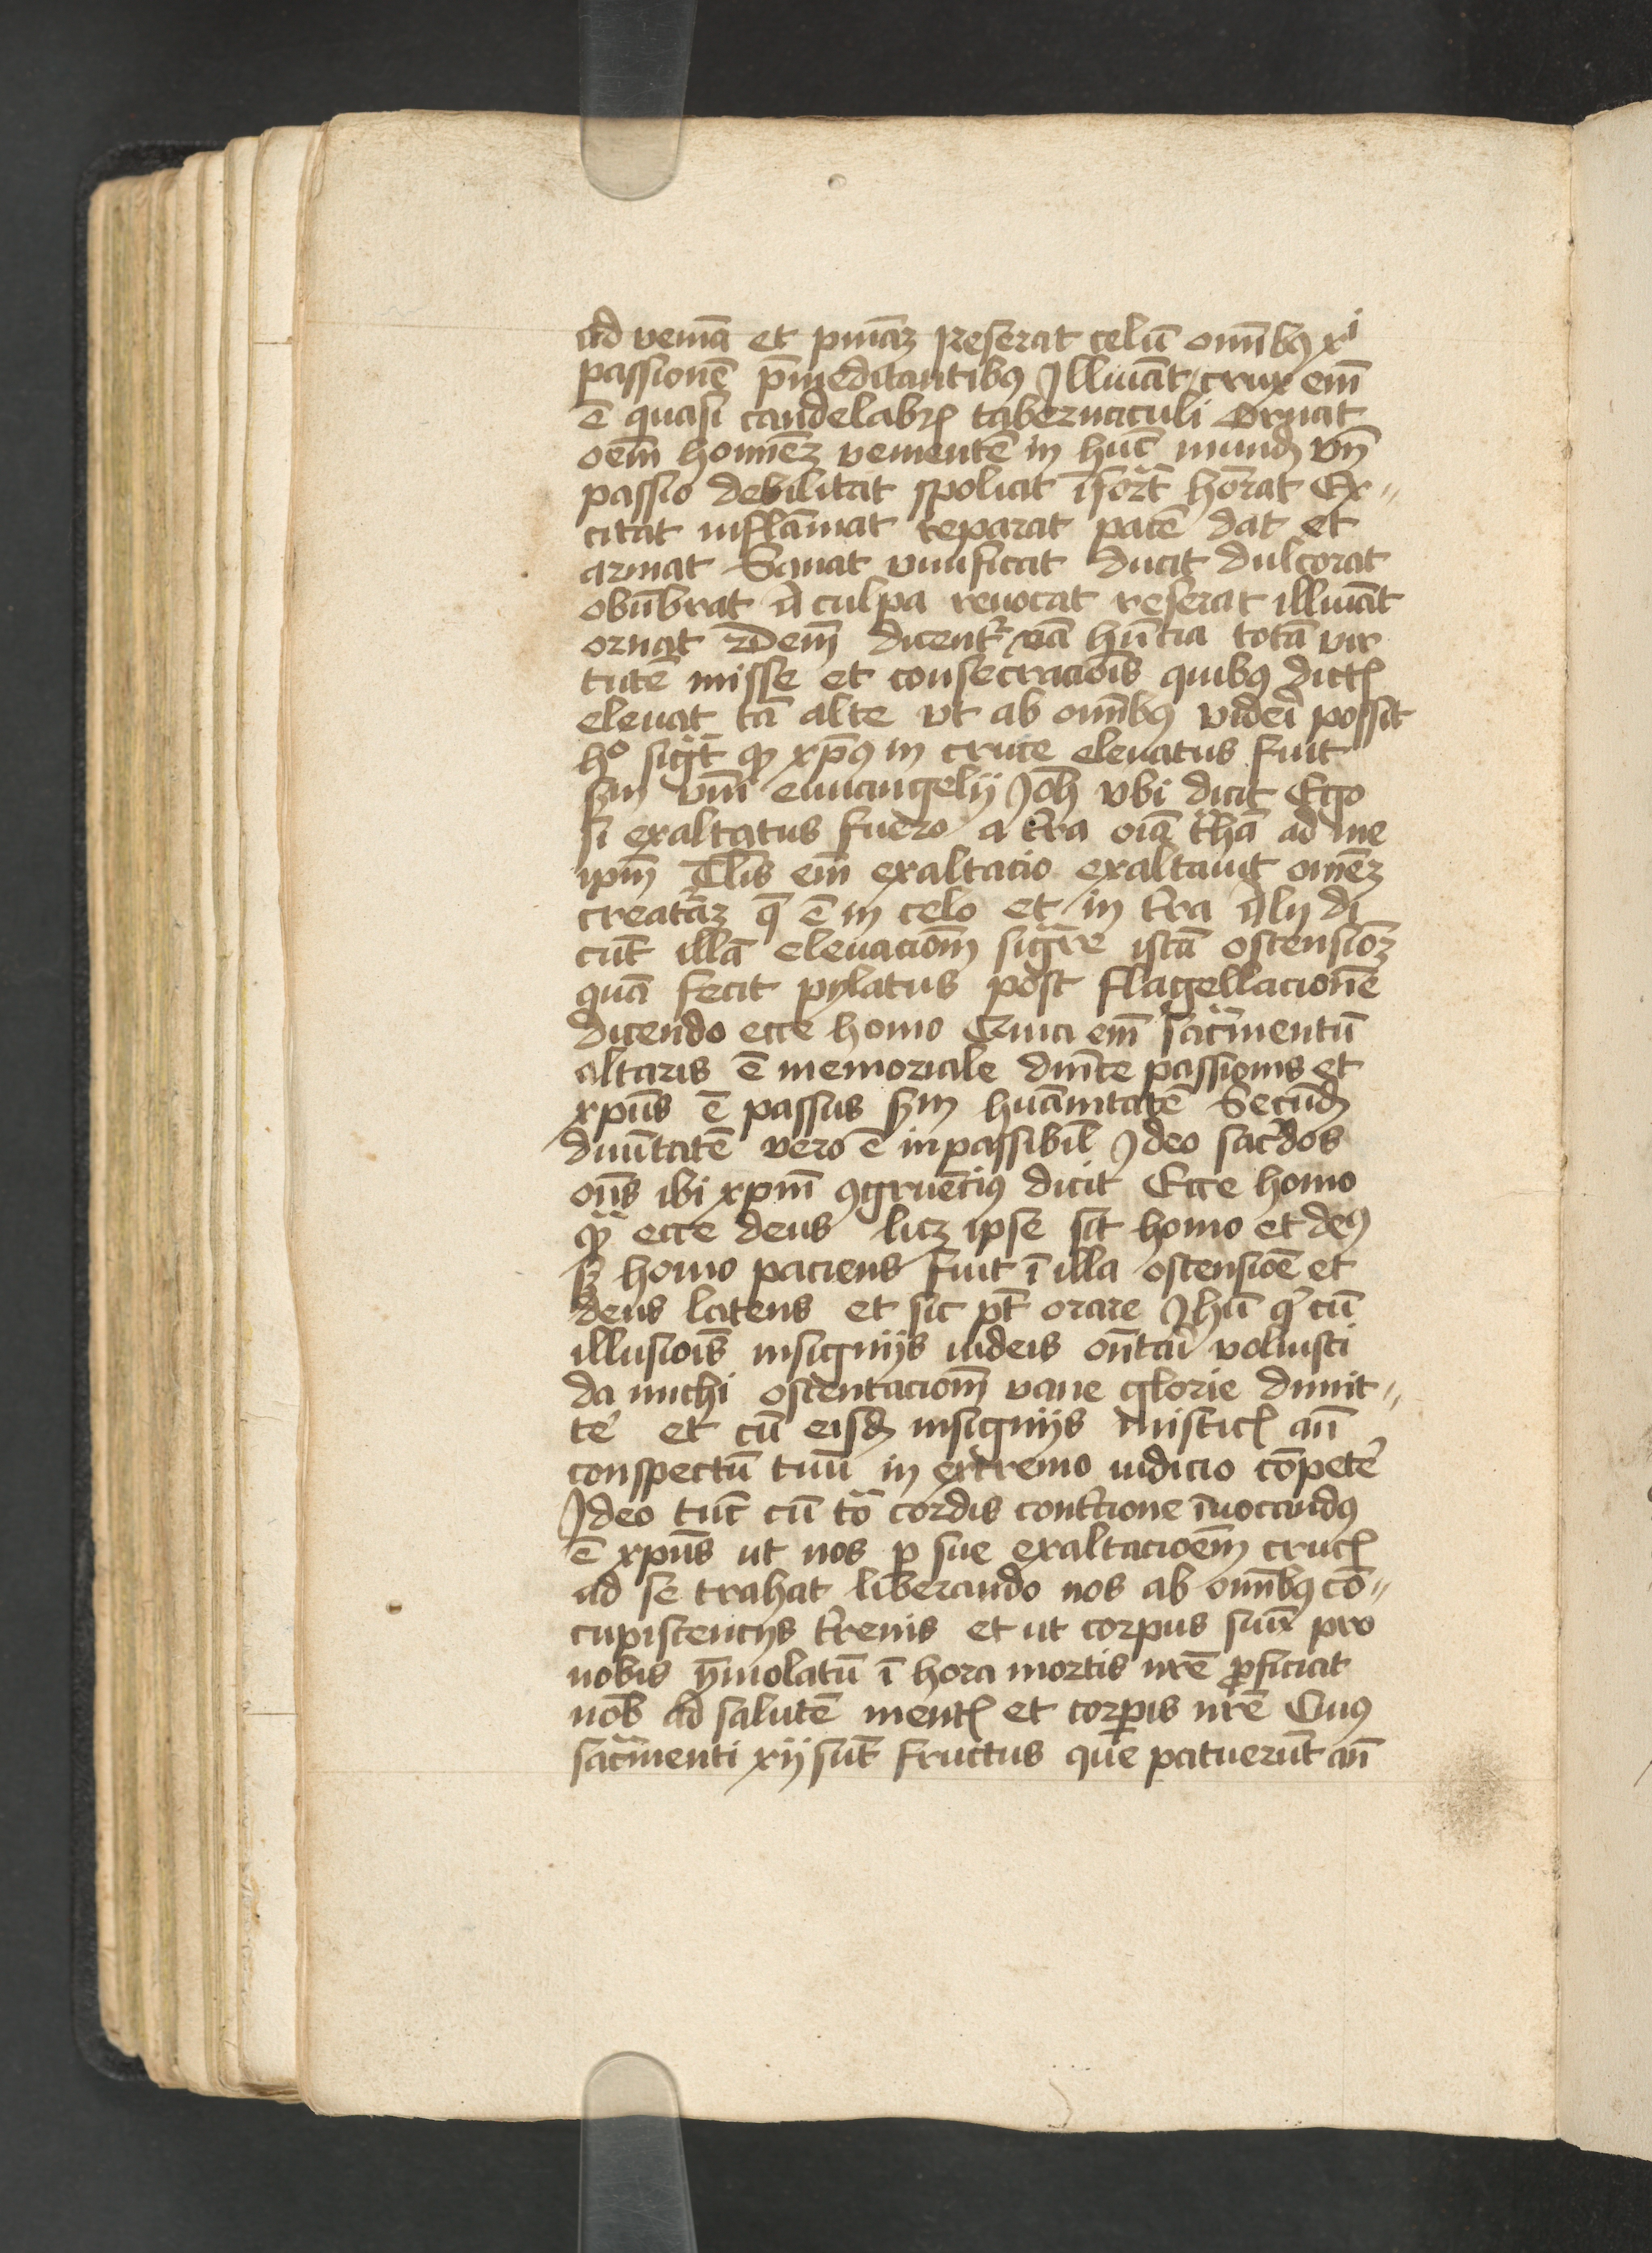 ad veniā et pmiāz Reserat celū om̄ibꝯ xi
passionē p̄meditantibꝯ Illuīat crux em̄
ē quasi candelabꝝ tabernaculi Ornat
oēm hominēz venientē in hūc mundū Vn̄
passio debilitat spoliat īfort̄ honrat Ex⸗
citat inflāmat reparat patē dat et
armat Sanat viuificat ducit dulcorat
obūbrat a culpa reuocat reserat illuīat
ornat Idem dicentʳ nā hūcia totā vir
tutē misse et consecracōis quibꝯ dictꝭ
eleuat tā alte vt ab om̄ibꝯ videri possit
hᵒ sigt̄ qꝫ xp̄ꝯ in cruce eleuatus fuit
scdm vm̄ ewangelij Joh̄ vbi dicit Ego
si exaltatus fuero a tr̄a oīa trahā ad me
ipm̄ Tlis em̄ exaltacio exaltauit omēz
creatāz q̄ ē in celo et in tr̄a Alij di
cūt illā eleuaciom̄ sigre istā ostensiōz
quā fecit pylatus post flagellacionē
dicendo ecce homo Quia em̄ sacm̄entū
altaris ē memoriale dm̄ice passionis et
xpūs ē passus scdm huāmitatē Secūdū
diuītatē vero ē inpassibil Ideo sac̄dos
on̄s ibi xpm̄ ꝯgruēcius dicit Ecce homo
qꝫ ecce deus licz ipse sit homo et deꝯ
sꝫ homo paciens fuit ī illa ostensiōe et
deus latens et sic pt̄ orare Ihū qͥ cū
illusiōis insignijs iudeis on̄tari voluisti
da michi ostentaciom̄ vane glorie dimit⸗
te͛ et cū eisdꝫ insignijs misticꝭ an̄
conspectū tuū in extremo iudicio cōpete͛
Ideo tūc cū tō cordis contcione īuocandꝯ
ē xpūs ut nos p sue exaltacioēm crucꝭ
ad se trahat liberando nos ab om̄ibꝯ cō⸗
cupiscencijs tr̄enis et ut corpus suū pro
nobis ȳmolatū ī hora mortis nr̄e ꝓficiat
nob̄ ad salutē mentꝭ et corpis nr̄e Cuiꝯ
sacm̄enti xij sūt fructus que patuerūt an̄